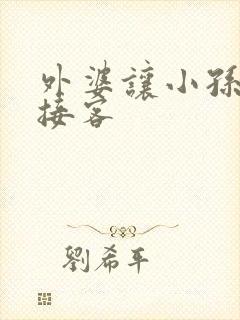 外婆讓小孫
接客
劉希平